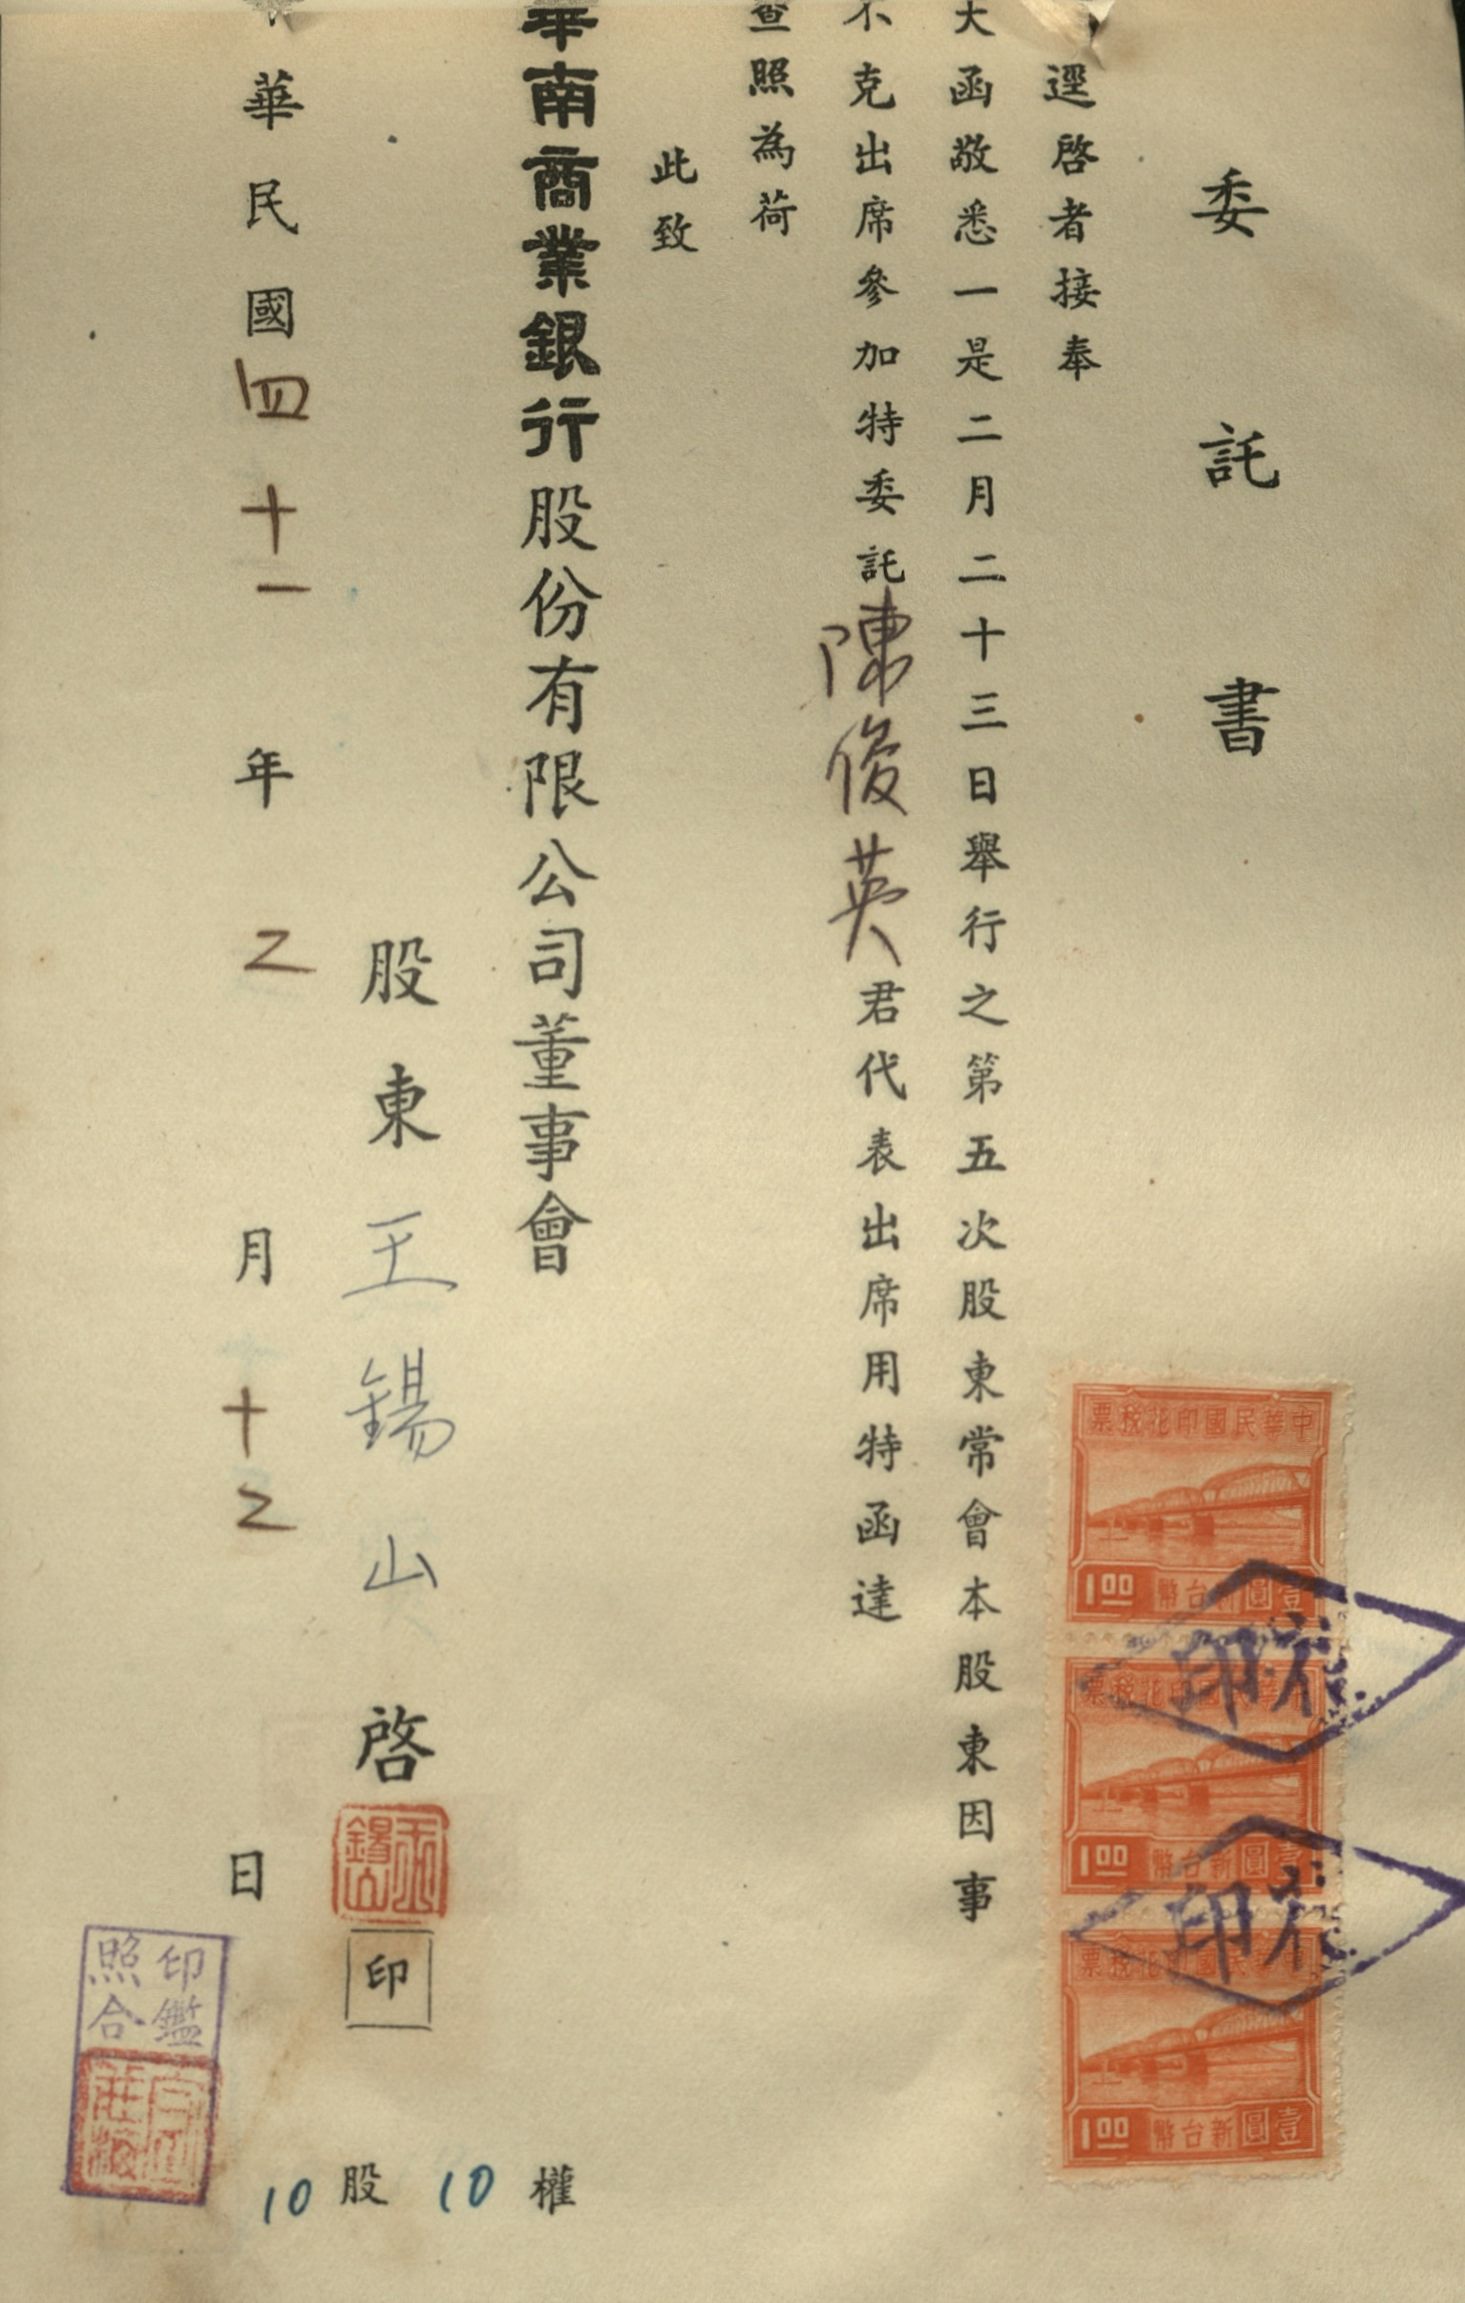 委託書
逕啓者接奉
大函敬悉一是二月二十三日舉行之第五次股東常會本股東因事
不克出席參加特委託陳俊英君代表出席用特函達
查照為荷
此致
華南商業銀行股份有限公司董事會
股東王錫山啓
印
中華民國四十一年二月十二日
10股10權
印鑑
照合
中華民國印花稅票
1.00
壹圓新台幣
中華民國印花稅票
1.00
壹圓新台幣
中華民國印花稅票
1.00
壹圓新台幣